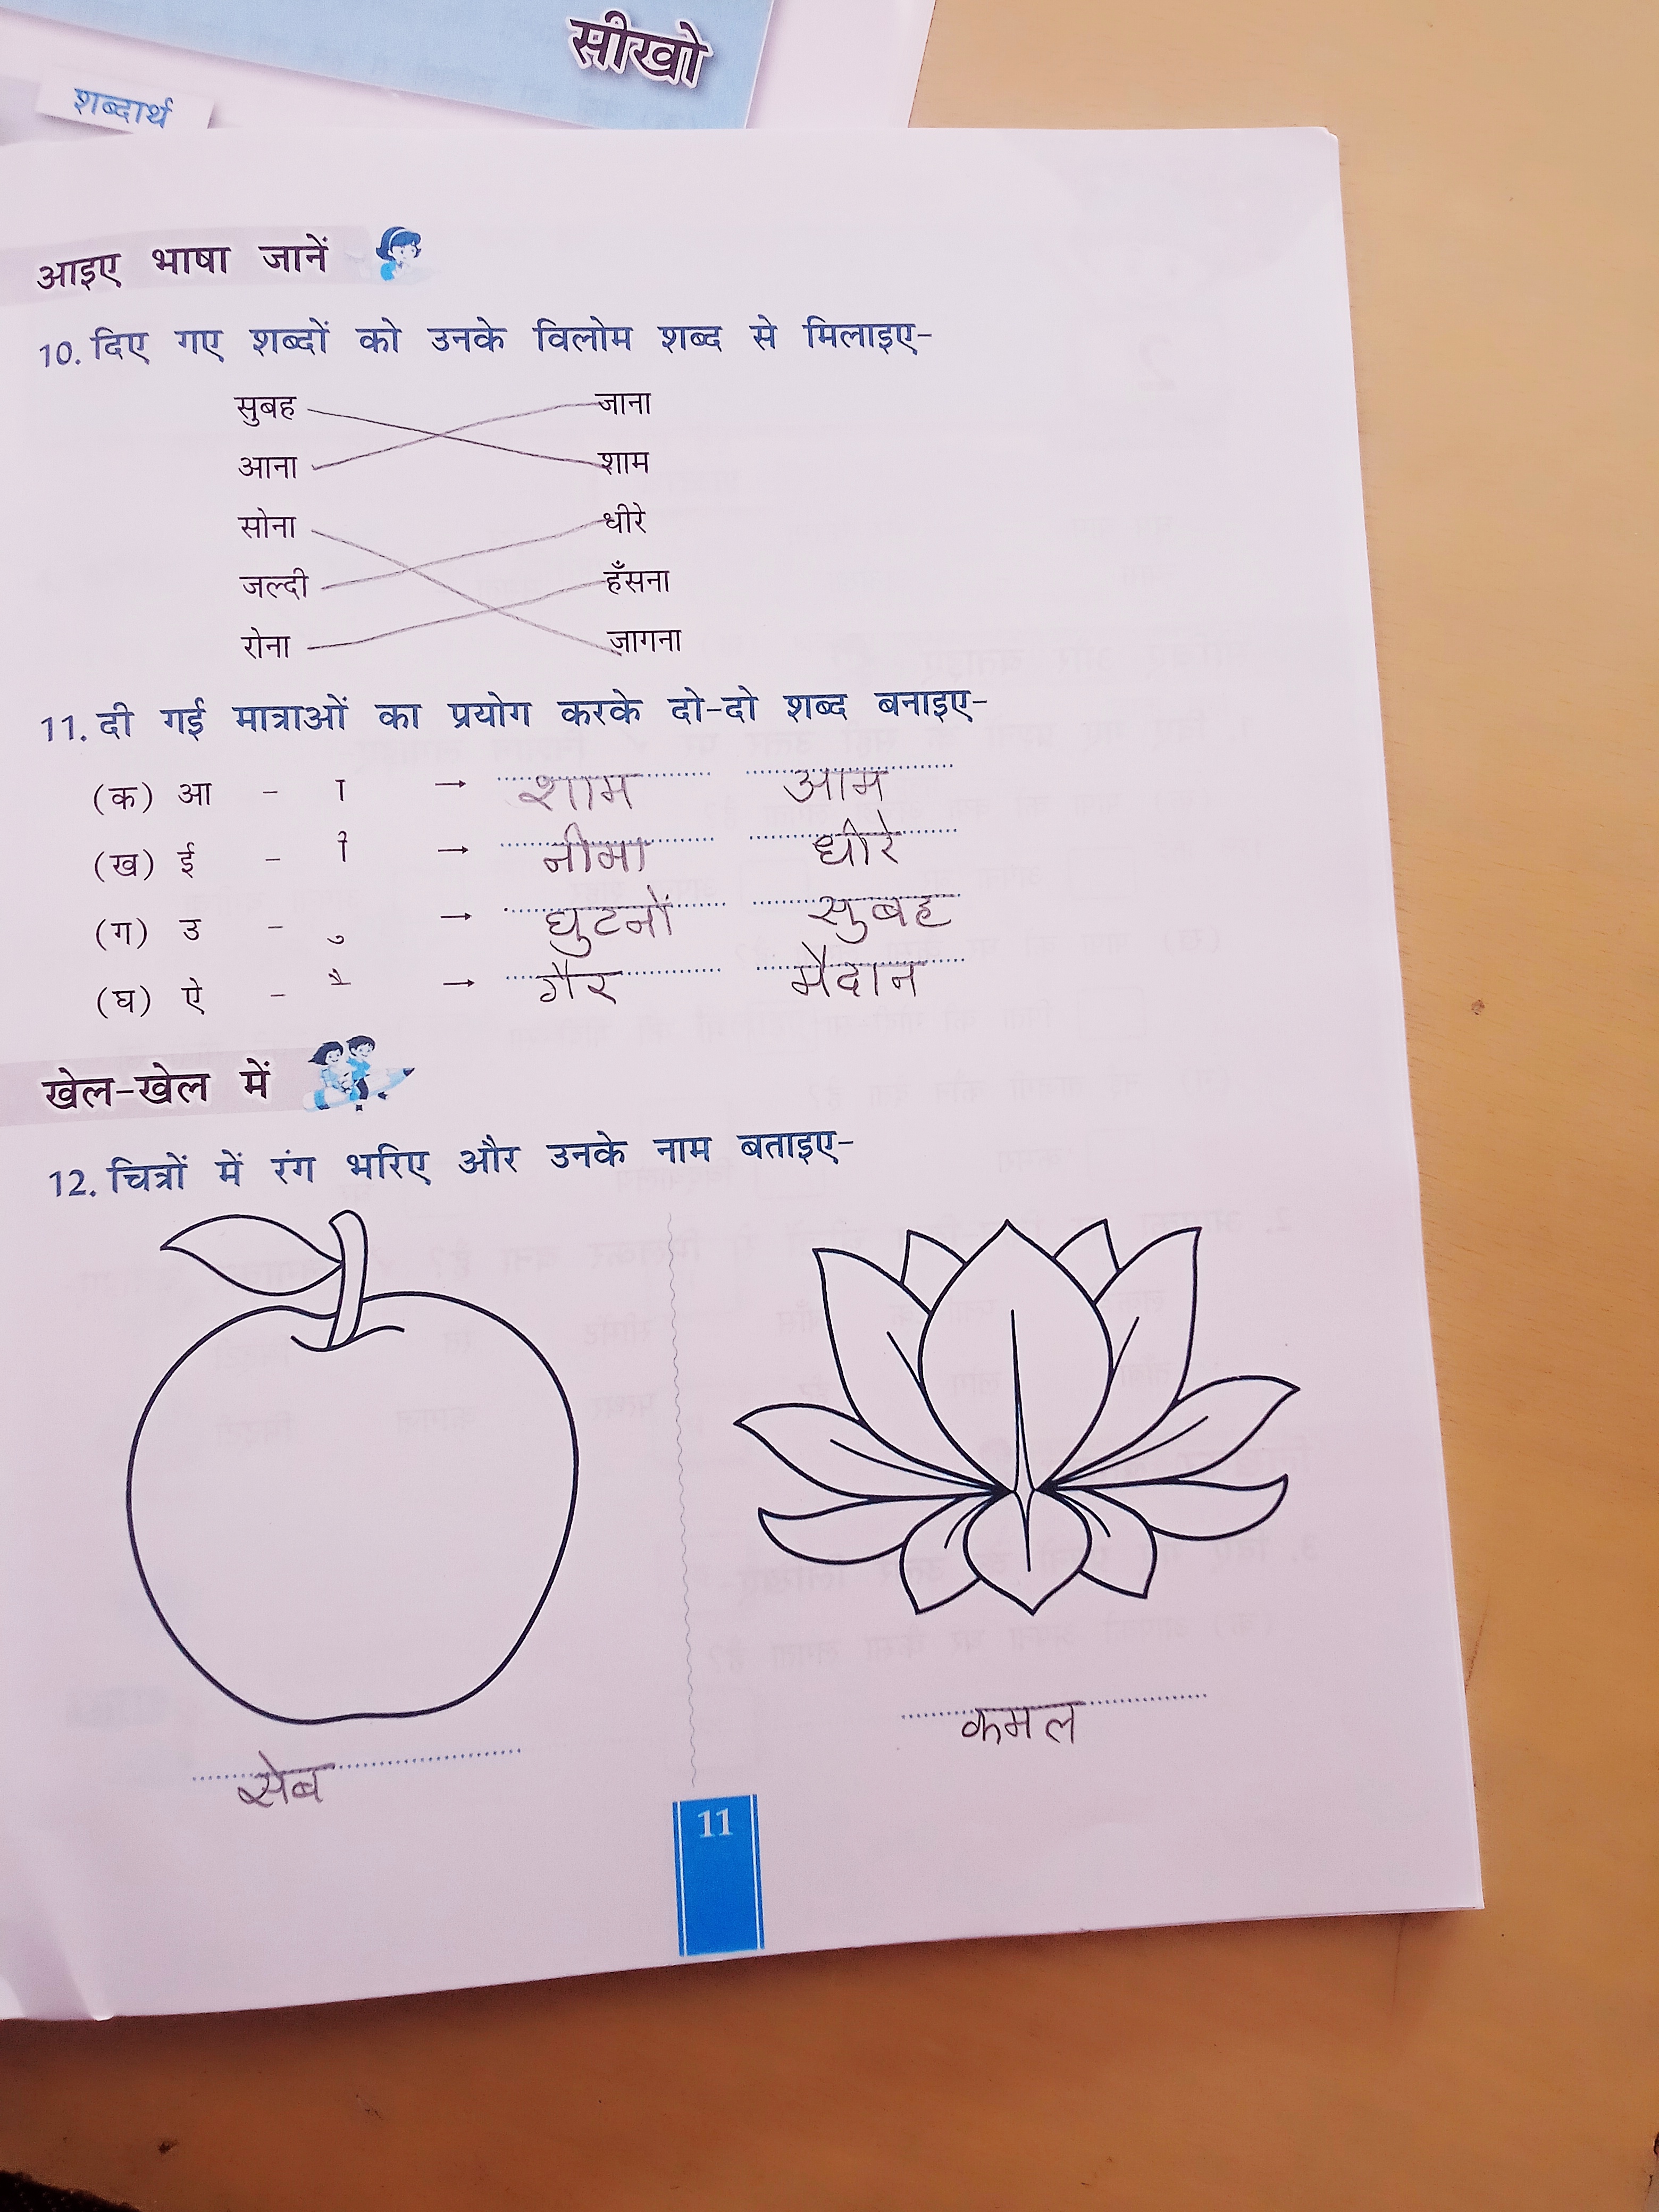 सीखो
शब्दार्थ
आइए भाषा जानें
10. दिए गए शब्दों को उनके विलोम शब्द से मिलाइए-
सुबह जाना
आना शाम
सोना धीरे
जल्दी हँसना
रोना जागना
11. दी गई मात्राओं का प्रयोग करके दो-दो शब्द बनाइए-
(क) आ - ा → शाम आम
(ख) ई - ी → नीमा धीरे
(ग) उ - ु → घुटनों सुबह
(घ) ऐ - ै → गैर मैदान
खेल-खेल में
12. चित्रों में रंग भरिए और उनके नाम बताइए-
सेब कमल
11